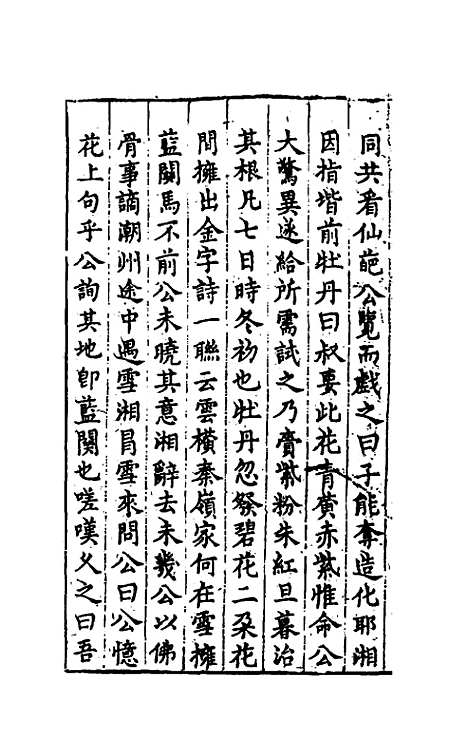 同共看仙葩公覽而戲之曰子能奪造化耶湘
因指堦前牡丹曰叔要此花青黃赤紫惟命公
大驚異遂給所需試之乃賫紫粉朱紅旦暮治
其根凡七日時冬初也牡丹忽發碧花二朶花
間擁出金字詩一聯云雲橫秦嶺家何在雪擁
藍關馬不前公未曉其意湘辭去未幾公以佛
骨事謫潮州途中遇雪湘冐雪來問公曰公憶
花上句乎公詢其地卽藍関也嗟嘆乆之曰吾